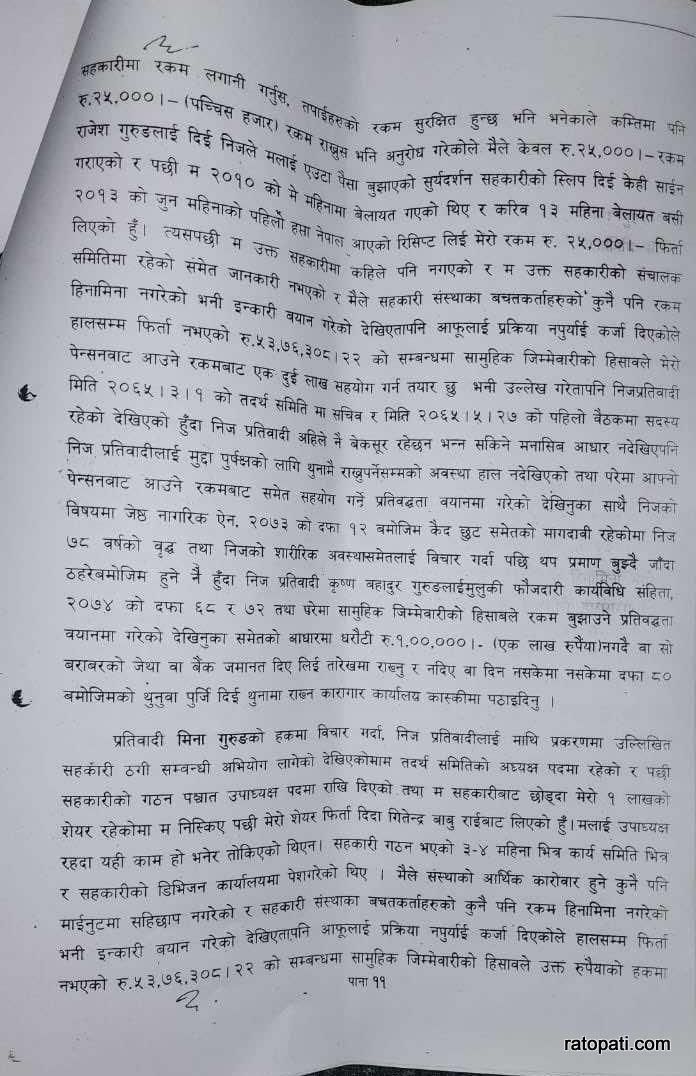 सहकारीमा रकम लगानी गर्नुस, तपाईहरुको रकम सुरक्षित हुन्छ भनि भनेकाले कम्तिमा पनि
रु.२५,०००।– (पच्चिस हजार) रकम राख्नुस भनि अनुरोध गरेकोले मैले केवल रु.२५,०००।– रकम
राजेश गुरुडलाई दिई निजले मलाई एउटा पैसा बुझाएको सुर्यदर्शन सहकारीको स्लिप दिई केही साईन
गराएको र पछी म २०१० को मे महिनामा बेलायत गएको थिए र करिव १३ महिना बेलायत बसी
२०१३ को जुन महिनाको पहिलो हप्ता नेपाल आएको रिसिप्ट लिई मेरो रकम रु. २५,०००।– फिर्ता
लिएको हुँ। त्यसपछी म उक्त सहकारीमा कहिले पनि नगएको र म उक्त सहकारीको संचालक
समितिमा रहेको संमेत जानकारी नभएको र मैले सहकारी संस्थाका बचतकर्ताहरुको कुनै पनि रकम
हिनामिना नगरेको भनी इन्कारी बयान गरेको देखिएतापनि आफूलाई प्रक्रिया नपुर्याई कर्जा दिएकोले
हालसम्म फिर्ता नभएको रु.५३,७६,३०८।२२ को सम्बन्धमा सामुहिक जिम्मेवारीको हिसावले मेरो
पेन्सनवाट आउने रकमबाट एक दुई लाख सहयोग गर्न तयार छु भनी उल्लेख गरेतापनि निजप्रतिवादी
मिति २०६५।३।१ को तदर्थ समिति मा सचिव र मिति २०६५।५।२७ को पहिलो वैठकमा सदस्य
रहेको देखिएको हुँदा निज प्रतिवादी अहिले नै बेकसूर रहेछन भन्न सकिने मनासिव आधार नदेखिएपनि
निज प्रतिवादीलाई मुद्दा पुर्पक्षको लागि थुनामै राख्नुपर्नेसम्मको अवस्था हाल नदेखिएको तथा परेमा आफ्नो
पेन्सनबाट आउने रकमबाट समेत सहयोग गर्ने प्रतिवद्धता वयानमा गरेको देखिनुका साथै निजको
विषयमा जेष्ठ नागरिक ऐन, २०७३ को दफा १२ बमोजिम कैद छुट समेतको मागदावी रहेकोमा निज
७८ वर्षको वृद्ध तथा निजको शारीरिक अवस्थासमेतलाई विचार गर्दा पछि थप प्रमाण बुझ्दै जाँदा
ठहरेबमोजिम हुने नै हुँदा निज प्रतिवादी कृष्ण वहादुर गुरुङलाईमुलुकी फौजदारी कार्यविधि संहिता,
२०७४ को दफा ६८ र ७२ तथा परेमा सामुहिक जिम्मेवारीको हिसाबले रकम बुझाउने प्रतिवद्धता
वयानमा गरेको देखिनुका समेतको आधारमा धरौटी रु.१,००,०००।- (एक लाख रुपैंया)नगदै वा सो
बराबरको जेथा वा बैंक जमानत दिए लिई तारेखमा राख्नु र नदिए वा दिन नसकेमा नसकेमा दफा ८०
बमोजिमको थुनुवा पुर्जि दिई थुनामा राख्न कारागार कार्यालय कास्कीमा पठाइदिनु ।
प्रतिवादी मिना गुरुडको हकमा विचार गर्दा, निज प्रतिवादीलाई माथि प्रकरणमा उल्लिखित
सहकारी ठगी सम्वन्धी अभियोग लागेको देखिएकोमाम तदर्थ समितिको अध्यक्ष पदमा रहेको र पछी
सहकारीको गठन पश्चात उपाध्यक्ष पदमा राखि दिएको तथा म सहकारीबाट छोड्दा मेरो १ लाखको
शेयर रहेकोमा म निस्किए पछी मेरो शेयर फिर्ता दिदा गितेन्द्र बाबु राईबाट लिएको हुँ। मलाई उपाध्यक्ष
रहदा यही काम हो भनेर तोकिएको थिएन। सहकारी गठन भएको ३-४ महिना भित्र कार्य समिति भित्र
र सहकारीको डिभिजन कार्यालयमा पेशगरेको थिए । मैले संस्थाको आर्थिक कारोवार हुने कुनै पनि
माईनुटमा सहिछाप नगरेको र सहकारी संस्थाका बचतकर्ताहरुको कुनै पनि रकम हिनामिना नगरेको
भनी इन्कारी बयान गरेको देखिएतापनि आफूलाई प्रक्रिया नपुर्याई कर्जा दिएकोले हालसम्म फिर्ता
नभएको रु.५३,७६,३०८।२२ को सम्बन्धमा सामुहिक जिम्मेवारीको हिसावले उक्त रुपैयाको हकमा
पाना ११
ratopati.com